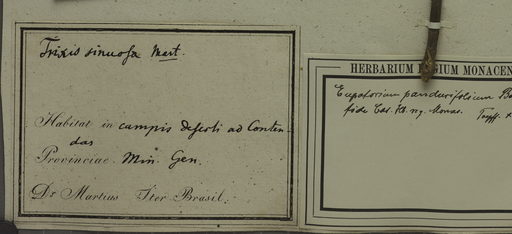 Trixis sinuosa Mart.
Habitat in campis deserti ad Conten-
das
Provinciae Min. Gen.
Dr Martius Iter Brasil.
HERBARIUM REGIUM MONACEN
Eupatorium pandurifolium Ba
fide Cat. Hb. reg. Monac.